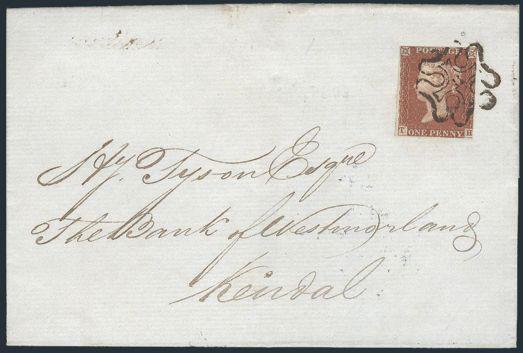 POSTAGE
ONE PENNY
Hy. Tyson Esqre
The Bank of Westmorland
Kendal